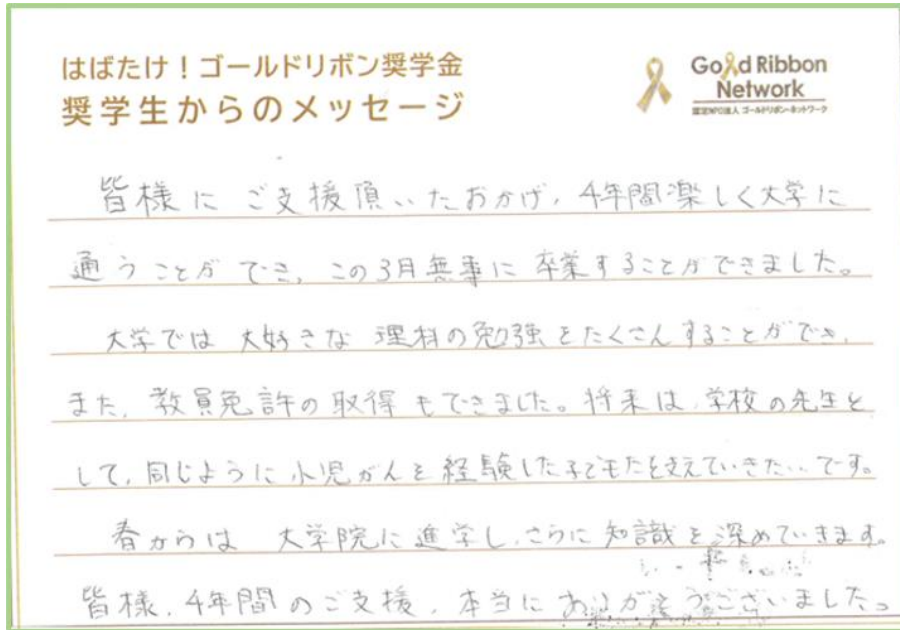 はばたけ！ゴールドリボン奨学金
奨学生からのメッセージ
Gold Ribbon
Network
認定NPO法人 ゴールドリボン・ネットワーク
皆様にご支援頂いたおかげ、4年間楽しく大学に
通うことができ、この3月無事に卒業することができました。
大学では大好きな理科の勉強をたくさんすることができ、
また、教員免許の取得もできました。将来は、学校の先生と
して、同じように小児がんを経験した子どもたちを支えていきたいです。
春からは大学院に進学し、さらに知識を深めていきます。
皆様、4年間のご支援、本当にありがとうございました。